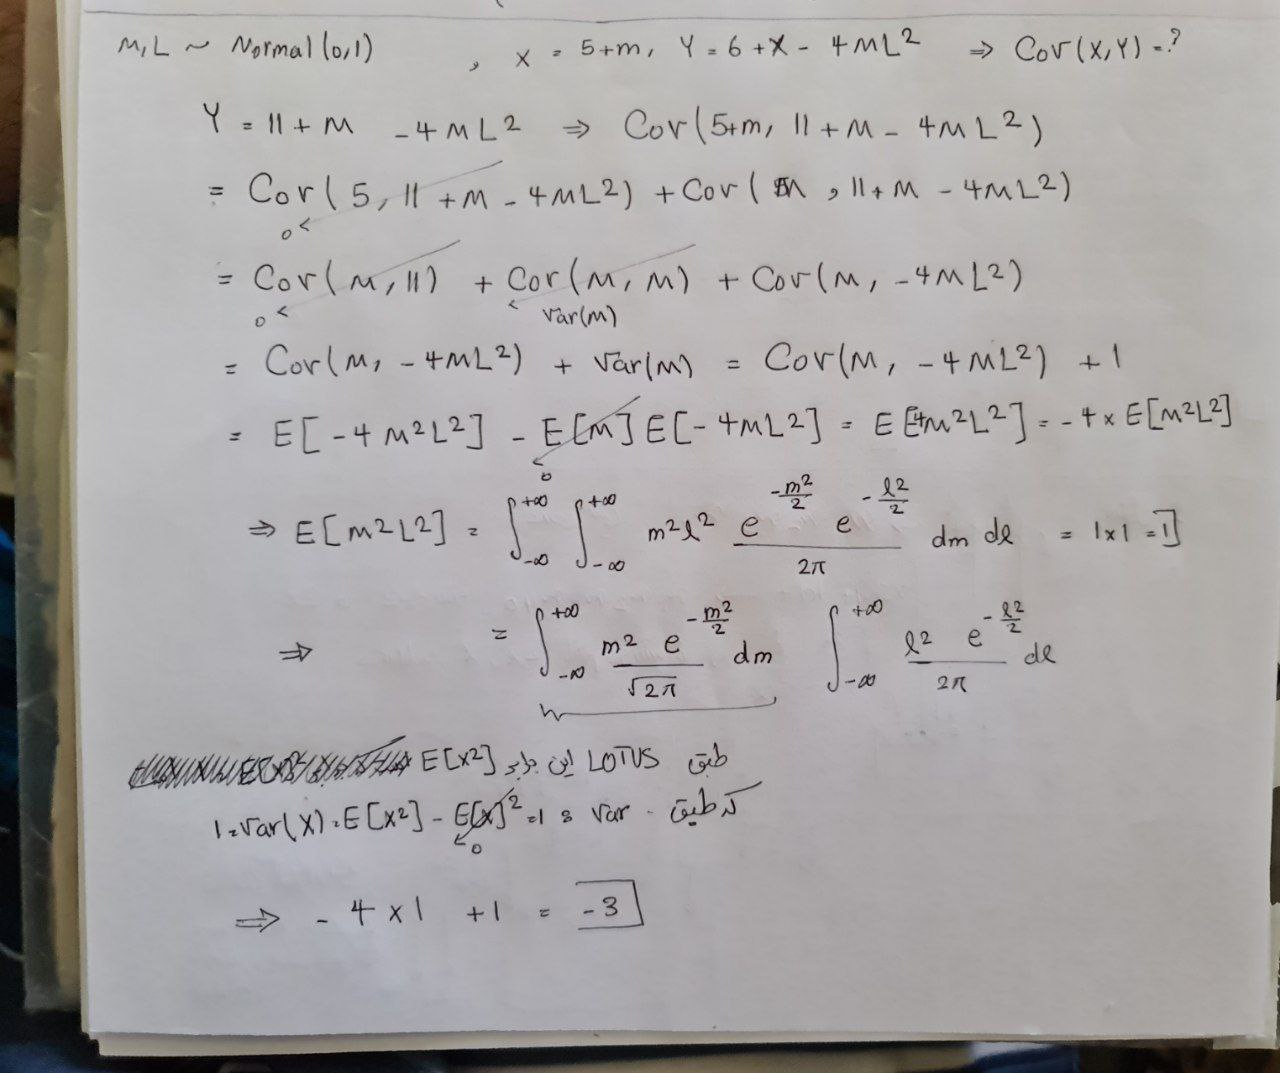 M,L ~ Normal(0,1) , X = 5+m, Y = 6+X - 4ML² ⇒ Cov(X,Y) = ?
Y = 11 + M - 4ML² ⇒ Cov(5+m, 11+M - 4ML²)
= Cov(5, 11+M - 4ML²) + Cov(M, 11+M - 4ML²)
0
= Cov(M,11) + Cov(M,M) + Cov(M, -4ML²)
0 Var(M)
= Cov(M, -4ML²) + Var(M) = Cov(M, -4ML²) + 1
= E[-4M²L²] - E[M]E[-4ML²] = E[-4M²L²] = -4 × E[M²L²]
0
⇒ E[M²L²] = ∫_{-∞}^{+∞} ∫_{-∞}^{+∞} m²l² e^{-m²/2} e^{-l²/2} / 2π dm dl = 1×1 = 1
⇒ = ∫_{-∞}^{+∞} m² e^{-m²/2} / √2π dm ∫_{-∞}^{+∞} l² e^{-l²/2} / 2π dl
طبق LOTUS این برابر E[X²]
که طبق var : 1 = Var(X) = E[X²] - E[X]² = 1
0
⇒ -4×1 + 1 = -3